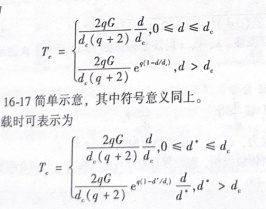 T_e = { 2qG/(d_c(q+2)) d/d_c, 0 ≤ d ≤ d_c
2qG/(d_c(q+2)) e^{q(1-d/d_c)}, d > d_c
16-17 简单示意，其中符号意义同上。
载时可表示为
T_e = { 2qG/(d_c(q+2)) d/d_c, 0 ≤ d* ≤ d_c
2qG/(d_c(q+2)) e^{q(1-d*/d_c)} d/d*, d* > d_c